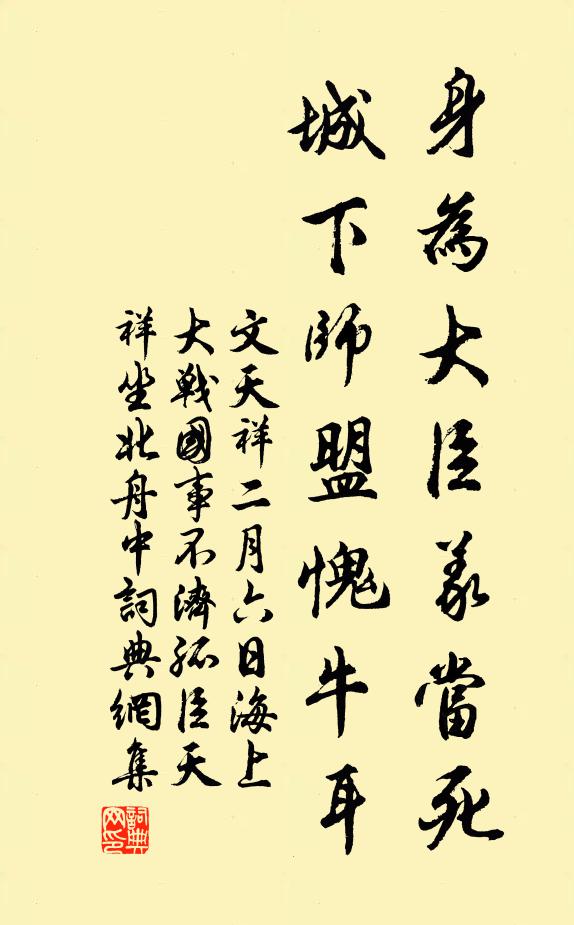 身為大臣義當死
城下師盟愧牛耳
文天祥二月六日海上
大戰國事不濟孤臣天
祥坐北舟中詞典網集
詞典網印